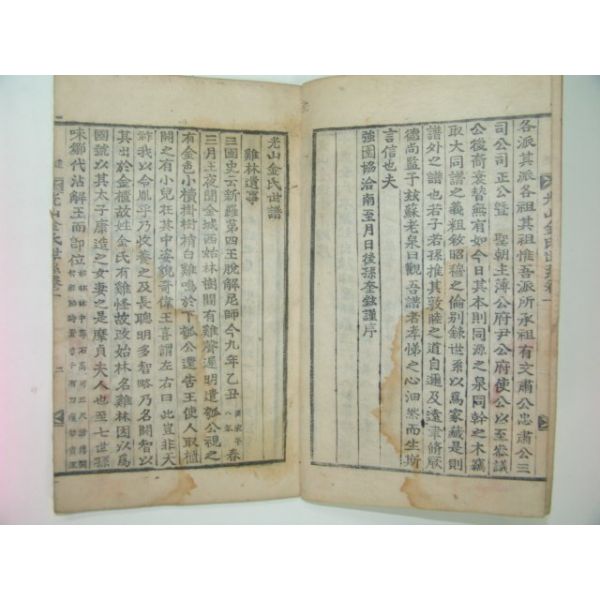 各派其派各祖其祖惟吾派所承祖有文肅公忠肅公三
司公司正公曁 聖朝主簿公府尹公府使公以至叅議
公後裔衰替無有如今日其本則同源之泉同幹之木竊
取大同譜之義粗敘昭穆之倫別錄世系以爲家藏是則
譜外之譜也若子若孫推其敦睦之道自邇及遠聿脩厥
德尚監于玆蘇老泉曰觀吾譜者孝悌之心油然而生斯
言信也夫
強圉協洽南至月日後孫奎鉉謹序
光山金氏世譜
雞林遺事
三國史云新羅第四王脫解尼師今九年乙丑 八年 春
三月王夜聞金城西始林樹間有雞聲遲明遣瓠公視之
有金色小櫝掛樹梢白雞鳴於下瓠公還告王使人取櫝
開之有小兒在其中姿貌奇偉王喜謂左右曰此豈非天
祚我以令胤乎乃收養之及長聰明多智略乃名閼智以
其出於金櫝故姓金氏有雞怪故改始林名雞林因以爲
國號以其太子康造之女妻之是摩貞夫人也至七世孫
味鄒代沾解王而卽位
光山金氏世系卷一
二